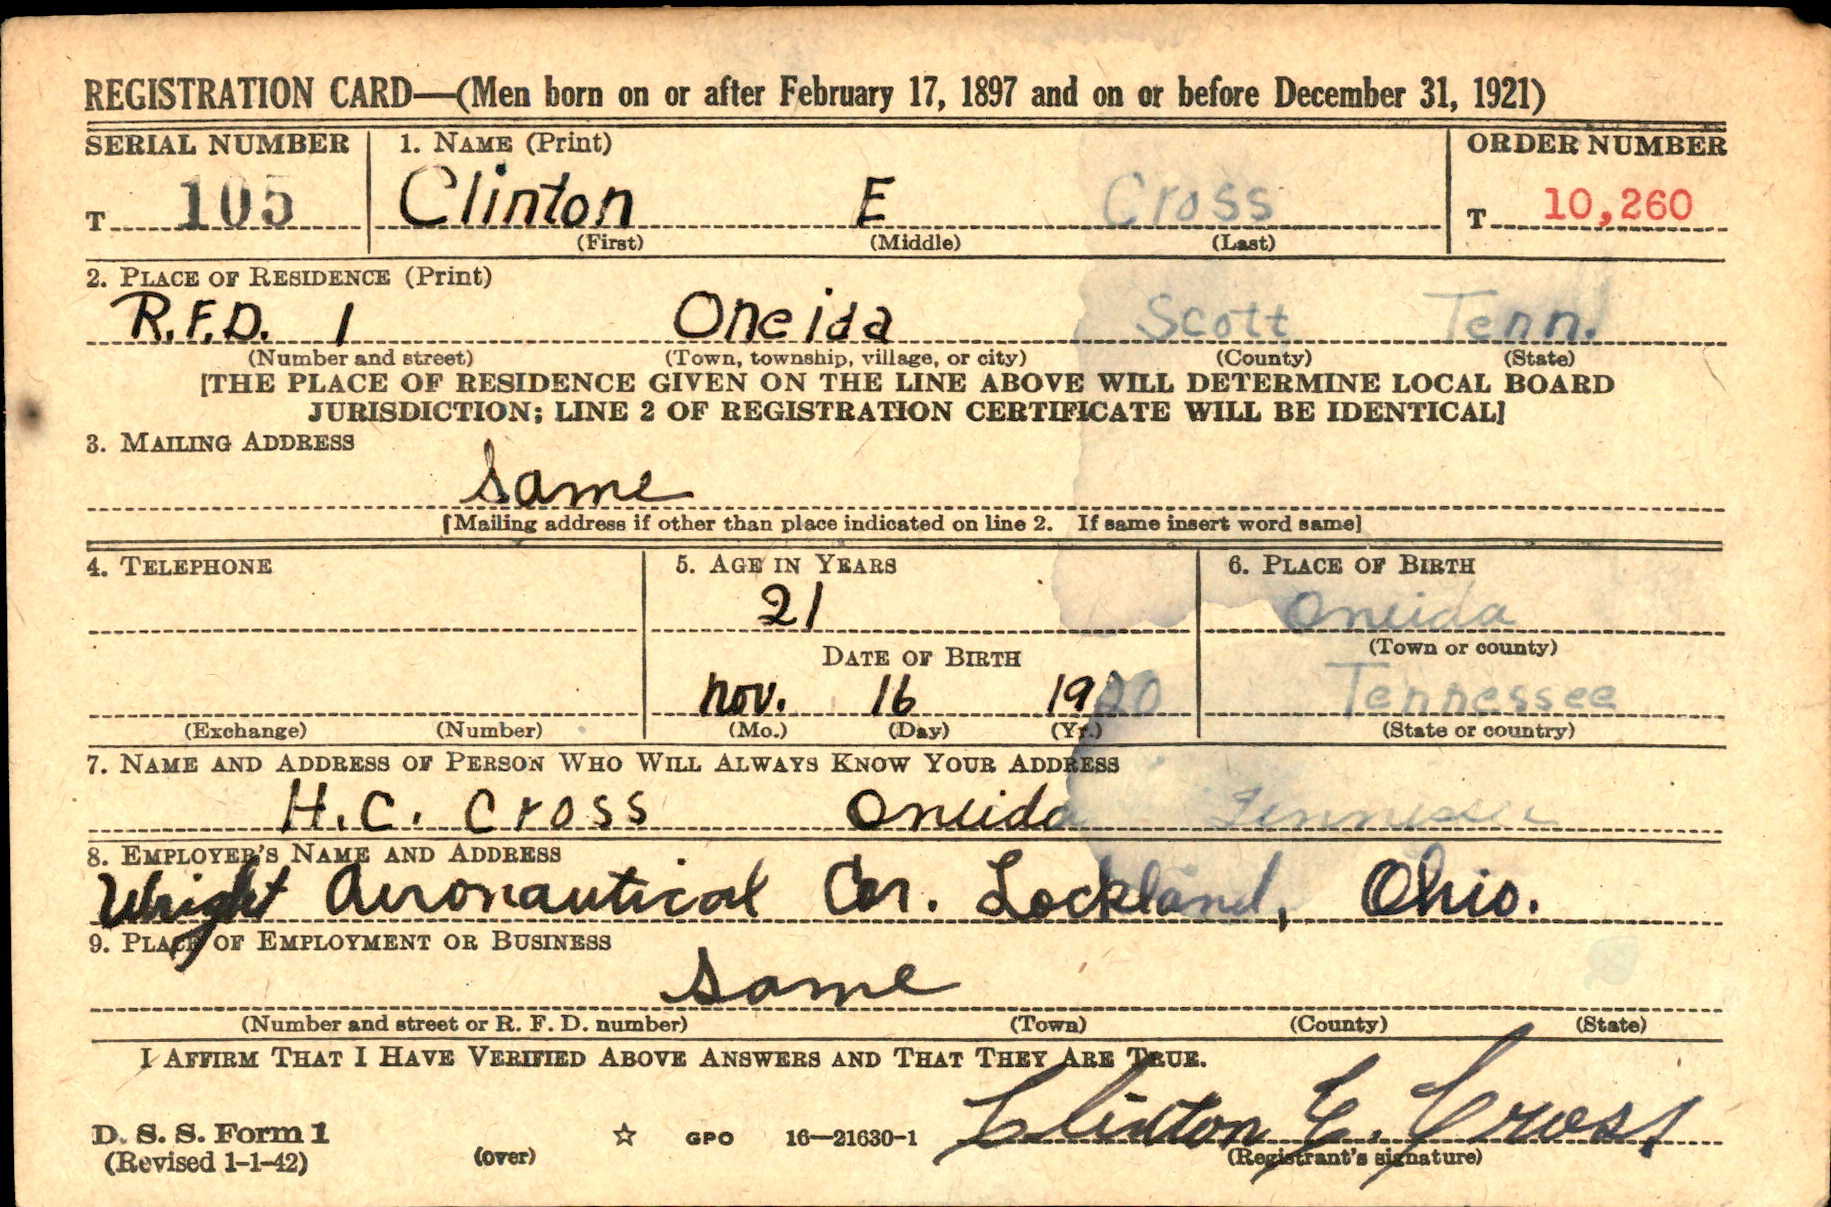 REGISTRATION CARD—(Men born on or after February 17, 1897 and on or before December 31, 1921)
SERIAL NUMBER 1. NAME (Print) ORDER NUMBER
T 105 Clinton E Cross T 10,260
(First) (Middle) (Last)
2. PLACE OF RESIDENCE (Print)
R.F.D. 1 Oneida Scott Tenn.
(Number and street) (Town, township, village, or city) (County) (State)
[THE PLACE OF RESIDENCE GIVEN ON THE LINE ABOVE WILL DETERMINE LOCAL BOARD
JURISDICTION; LINE 2 OF REGISTRATION CERTIFICATE WILL BE IDENTICAL]
3. MAILING ADDRESS
Same
[Mailing address if other than place indicated on line 2. If same insert word same]
4. TELEPHONE 5. AGE IN YEARS 6. PLACE OF BIRTH
21 Oneida
DATE OF BIRTH (Town or county)
Nov. 16 1920 Tennessee
(Exchange) (Number) (Mo.) (Day) (Yr.) (State or country)
7. NAME AND ADDRESS OF PERSON WHO WILL ALWAYS KNOW YOUR ADDRESS
H.C. Cross Oneida Tennessee
8. EMPLOYER'S NAME AND ADDRESS
Wright Aeronautical Cor. Lockland, Ohio.
9. PLACE OF EMPLOYMENT OR BUSINESS
Same
(Number and street or R. F. D. number) (Town) (County) (State)
I AFFIRM THAT I HAVE VERIFIED ABOVE ANSWERS AND THAT THEY ARE TRUE.
D. S. S. Form 1 Clinton E. Cross
(Revised 1-1-42) (over) ☆ GPO 16—21630-1 (Registrant's signature)